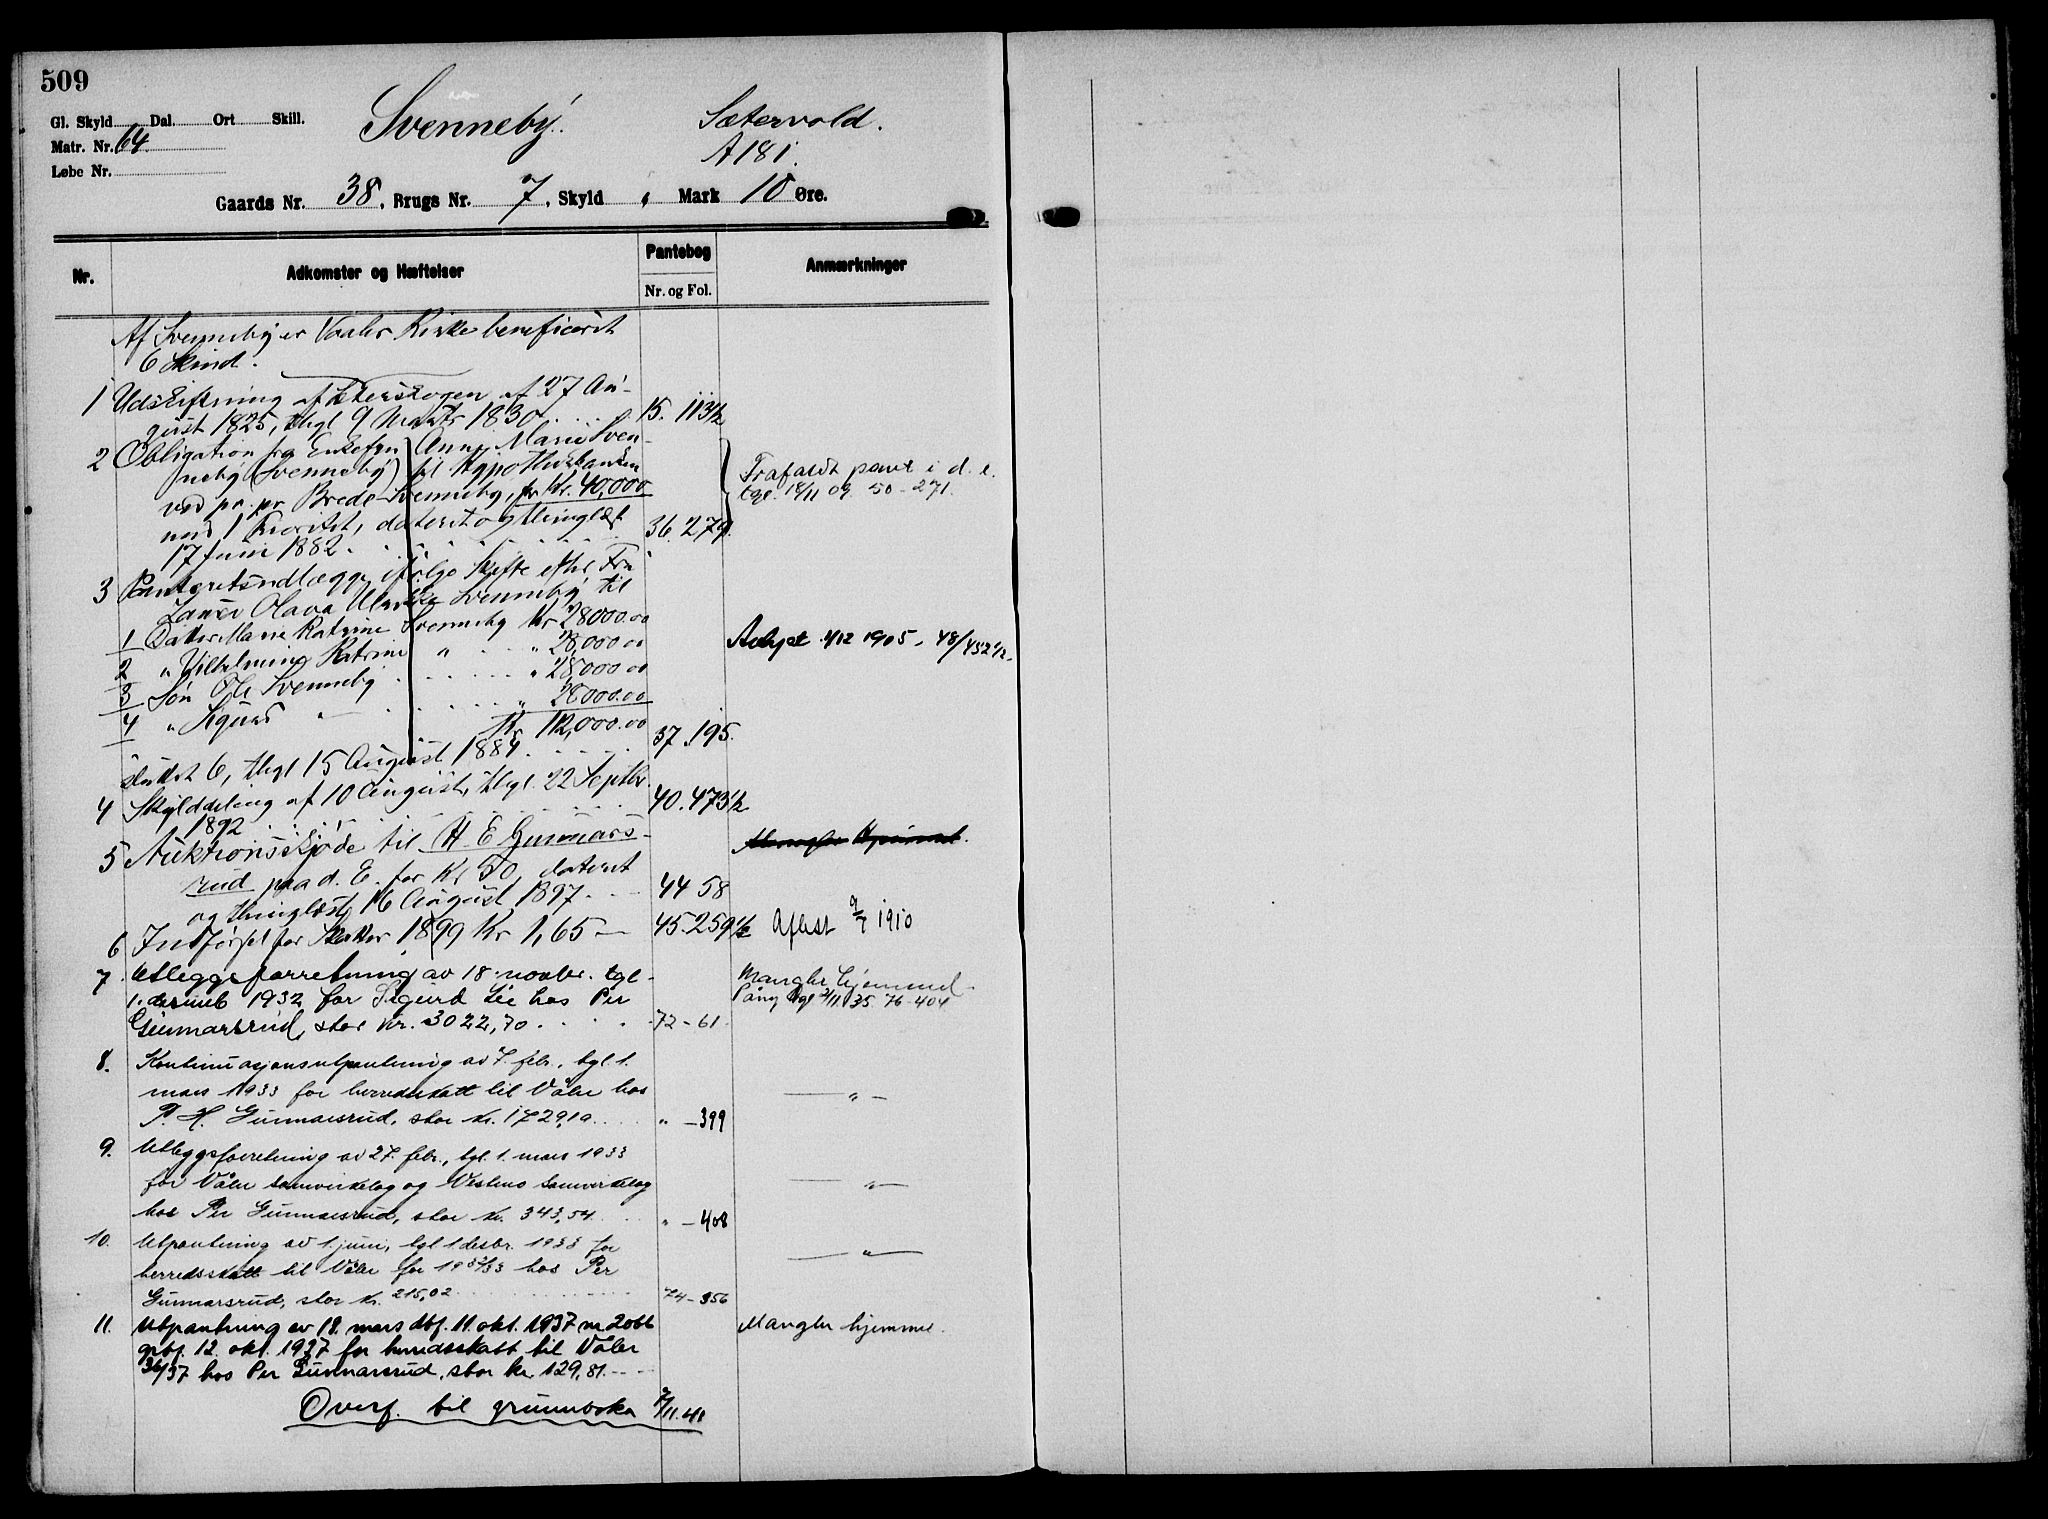 509
Gl. Skyld Dal. Ort Skill.
Matr. Nr. 64.
Løbe Nr.
Svenneby.
Sætervold.
A 181.
Gaards Nr. 38, Brugs Nr. 7, Skyld " Mark 10 Øre.
Nr. Adkomster og Hæftelser Pantebog Anmærkninger
Nr. og Fol.
Af Svenneby er Vaaler Kirke beneficeret
6 Skind.
1 Udskiftning af 27 Au-
gust 1825, thgl 9 Marts 1830 15. 113½
2 Obligation fra Enkefru Anne Marie Sven-
neby (Svenneby) til Hypothekbanken
ved pr. pr Brede Svenneby, for Kr. 40,000
med 1 Prioritet, dateret og thinglæst
17 Juni 1882. 36. 274.
Frafaldt pant i d. e.
tgl. 18/11 09. 50-271.
3 Panteretsudlægge, ifølge Skifte efter Fru
Olava Ulrikke Svenneby til
1 Datter Marie Katrine Svenneby Kr 28000.00
2 " Vilhelmine Katrine " " 28,000 00
3 Søn Ole Svenneby " 28000 00
4 " Sigurd " 28000.00
Kr 112,000.00
sluttet 6, thgl 15 August 1884 37. 195.
Aflyst 1/12 1905 - 48/452½.
4 Skylddeling af 10 August, thgl. 22 Septbr.
1892 40. 473½
5 Auktionsskjøde til H. E. Gunnars-
rud paa d. E. for Kr 50, dateret
og thinglæst, 16 August 1897. 44 58
Mangler Hjemmel.
6 Indførsel for Skatter 1899 Kr 1,65 45. 259½ Aflæst 9/7 1910
7. Utleggsforretning av 18. novbr. tgl.
1. desemb 1932 for Sigurd Lie hos Per
Gunnarsrud, stor kr. 3022,70. 72-61.
Mangler hjemmel.
Påny tgl 2/11 35. 76-404
8. Kontinuasjonsutpantning av 7. febr., tgl 1.
mars 1933 for herredsskatt til Våler hos
P. H. Gunnarsrud, stor kr. 1729,10. " -399
— " —
9. Utleggsforretning av 27. febr., tgl. 1. mars 1933
for Våler samvirkelag og Vestens Samvirkelag
hos Per Gunnarsrud, stor kr. 343,54 " -408
— " —
10. Utpantning av 1. juni, tgl 1 desbr. 1933 for
herredsskatt til Våler for 1932/33 hos Per
Gunnarsrud, stor kr. 215,02 74-356
— " —
11. Utpantning av 19. mars dbf. 11. okt. 1937 nr. 2066
grbf. 12. okt. 1937 for herredsskatt til Våler
36/37 hos Per Gunnarsrud, stor kr. 129,81.
Mangler hjemmel.
Overf. til grunnboka 7/11.41